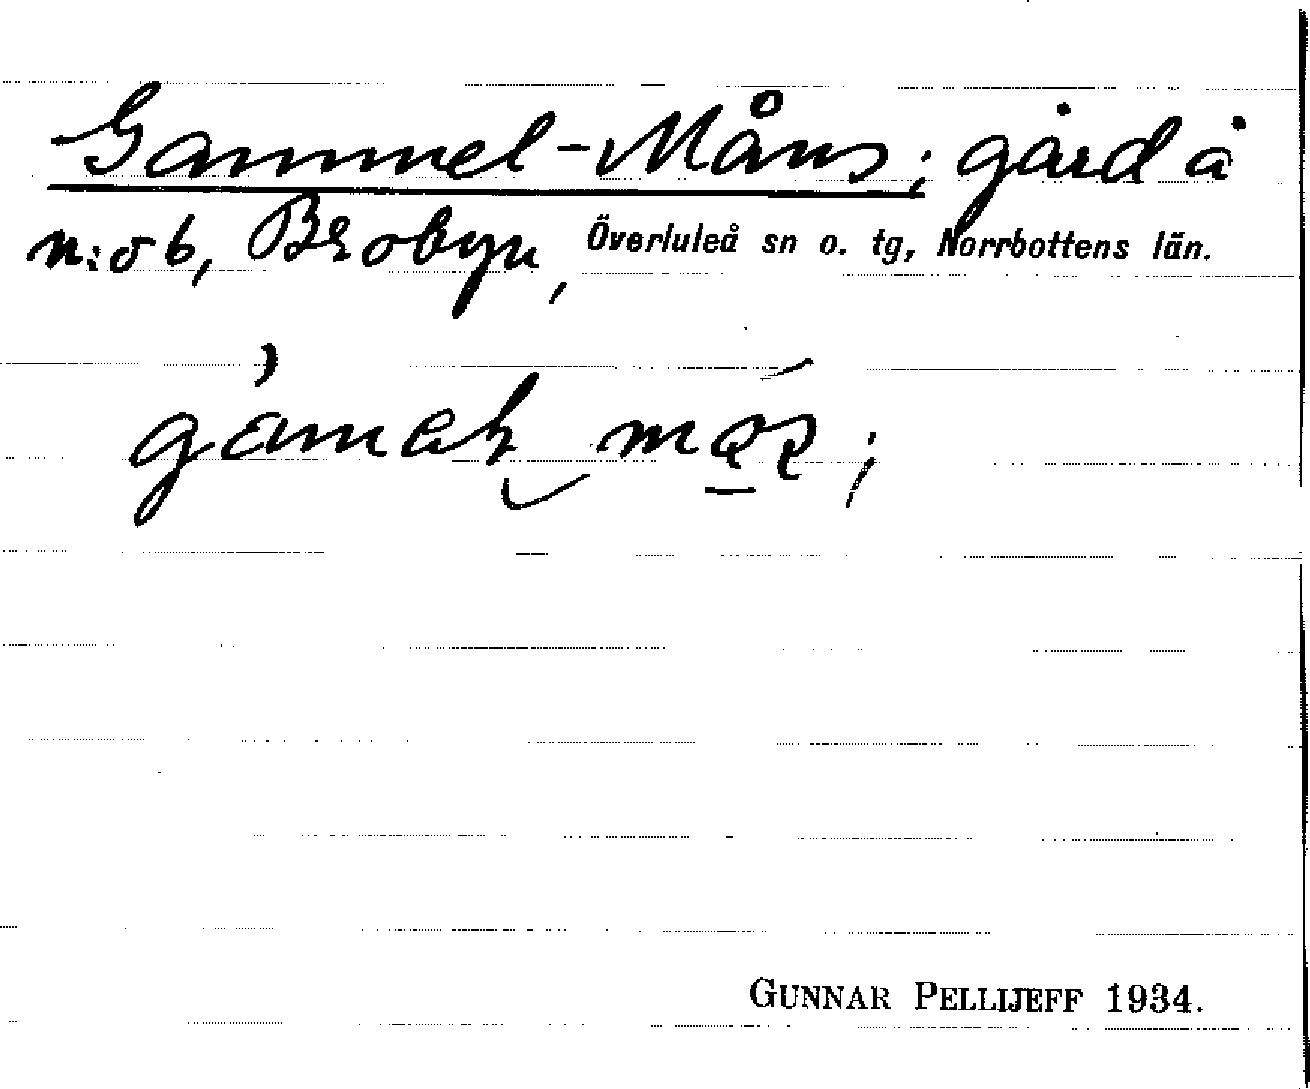 Gammel-Måns; gård å
n:o 6, Brobyn, Överluleå sn o. tg, Norrbottens län.
GUNNAR PELLIJEFF 1934.